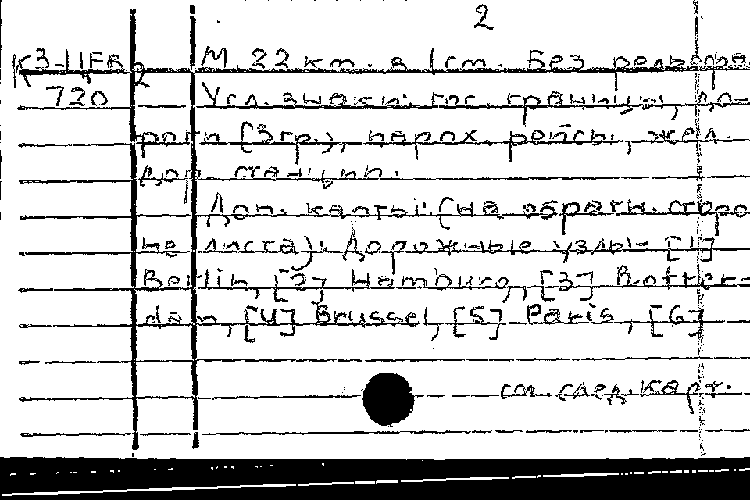 2
К3-11ЕВ М. 22 км. в 1 см. Без рельефа
2
720 Усл. знаки: гос. границы, до-
роги (3 гр.), парох. рейсы, жел.
дор. станции.
Доп. карты: (на обратн. сторо
не листа): Дорожные узлы: [1]
Berlin, [2] Hamburg, [3] Rotter-
dam, [4] Brussel, [5] Paris, [6]
см. след. карт.